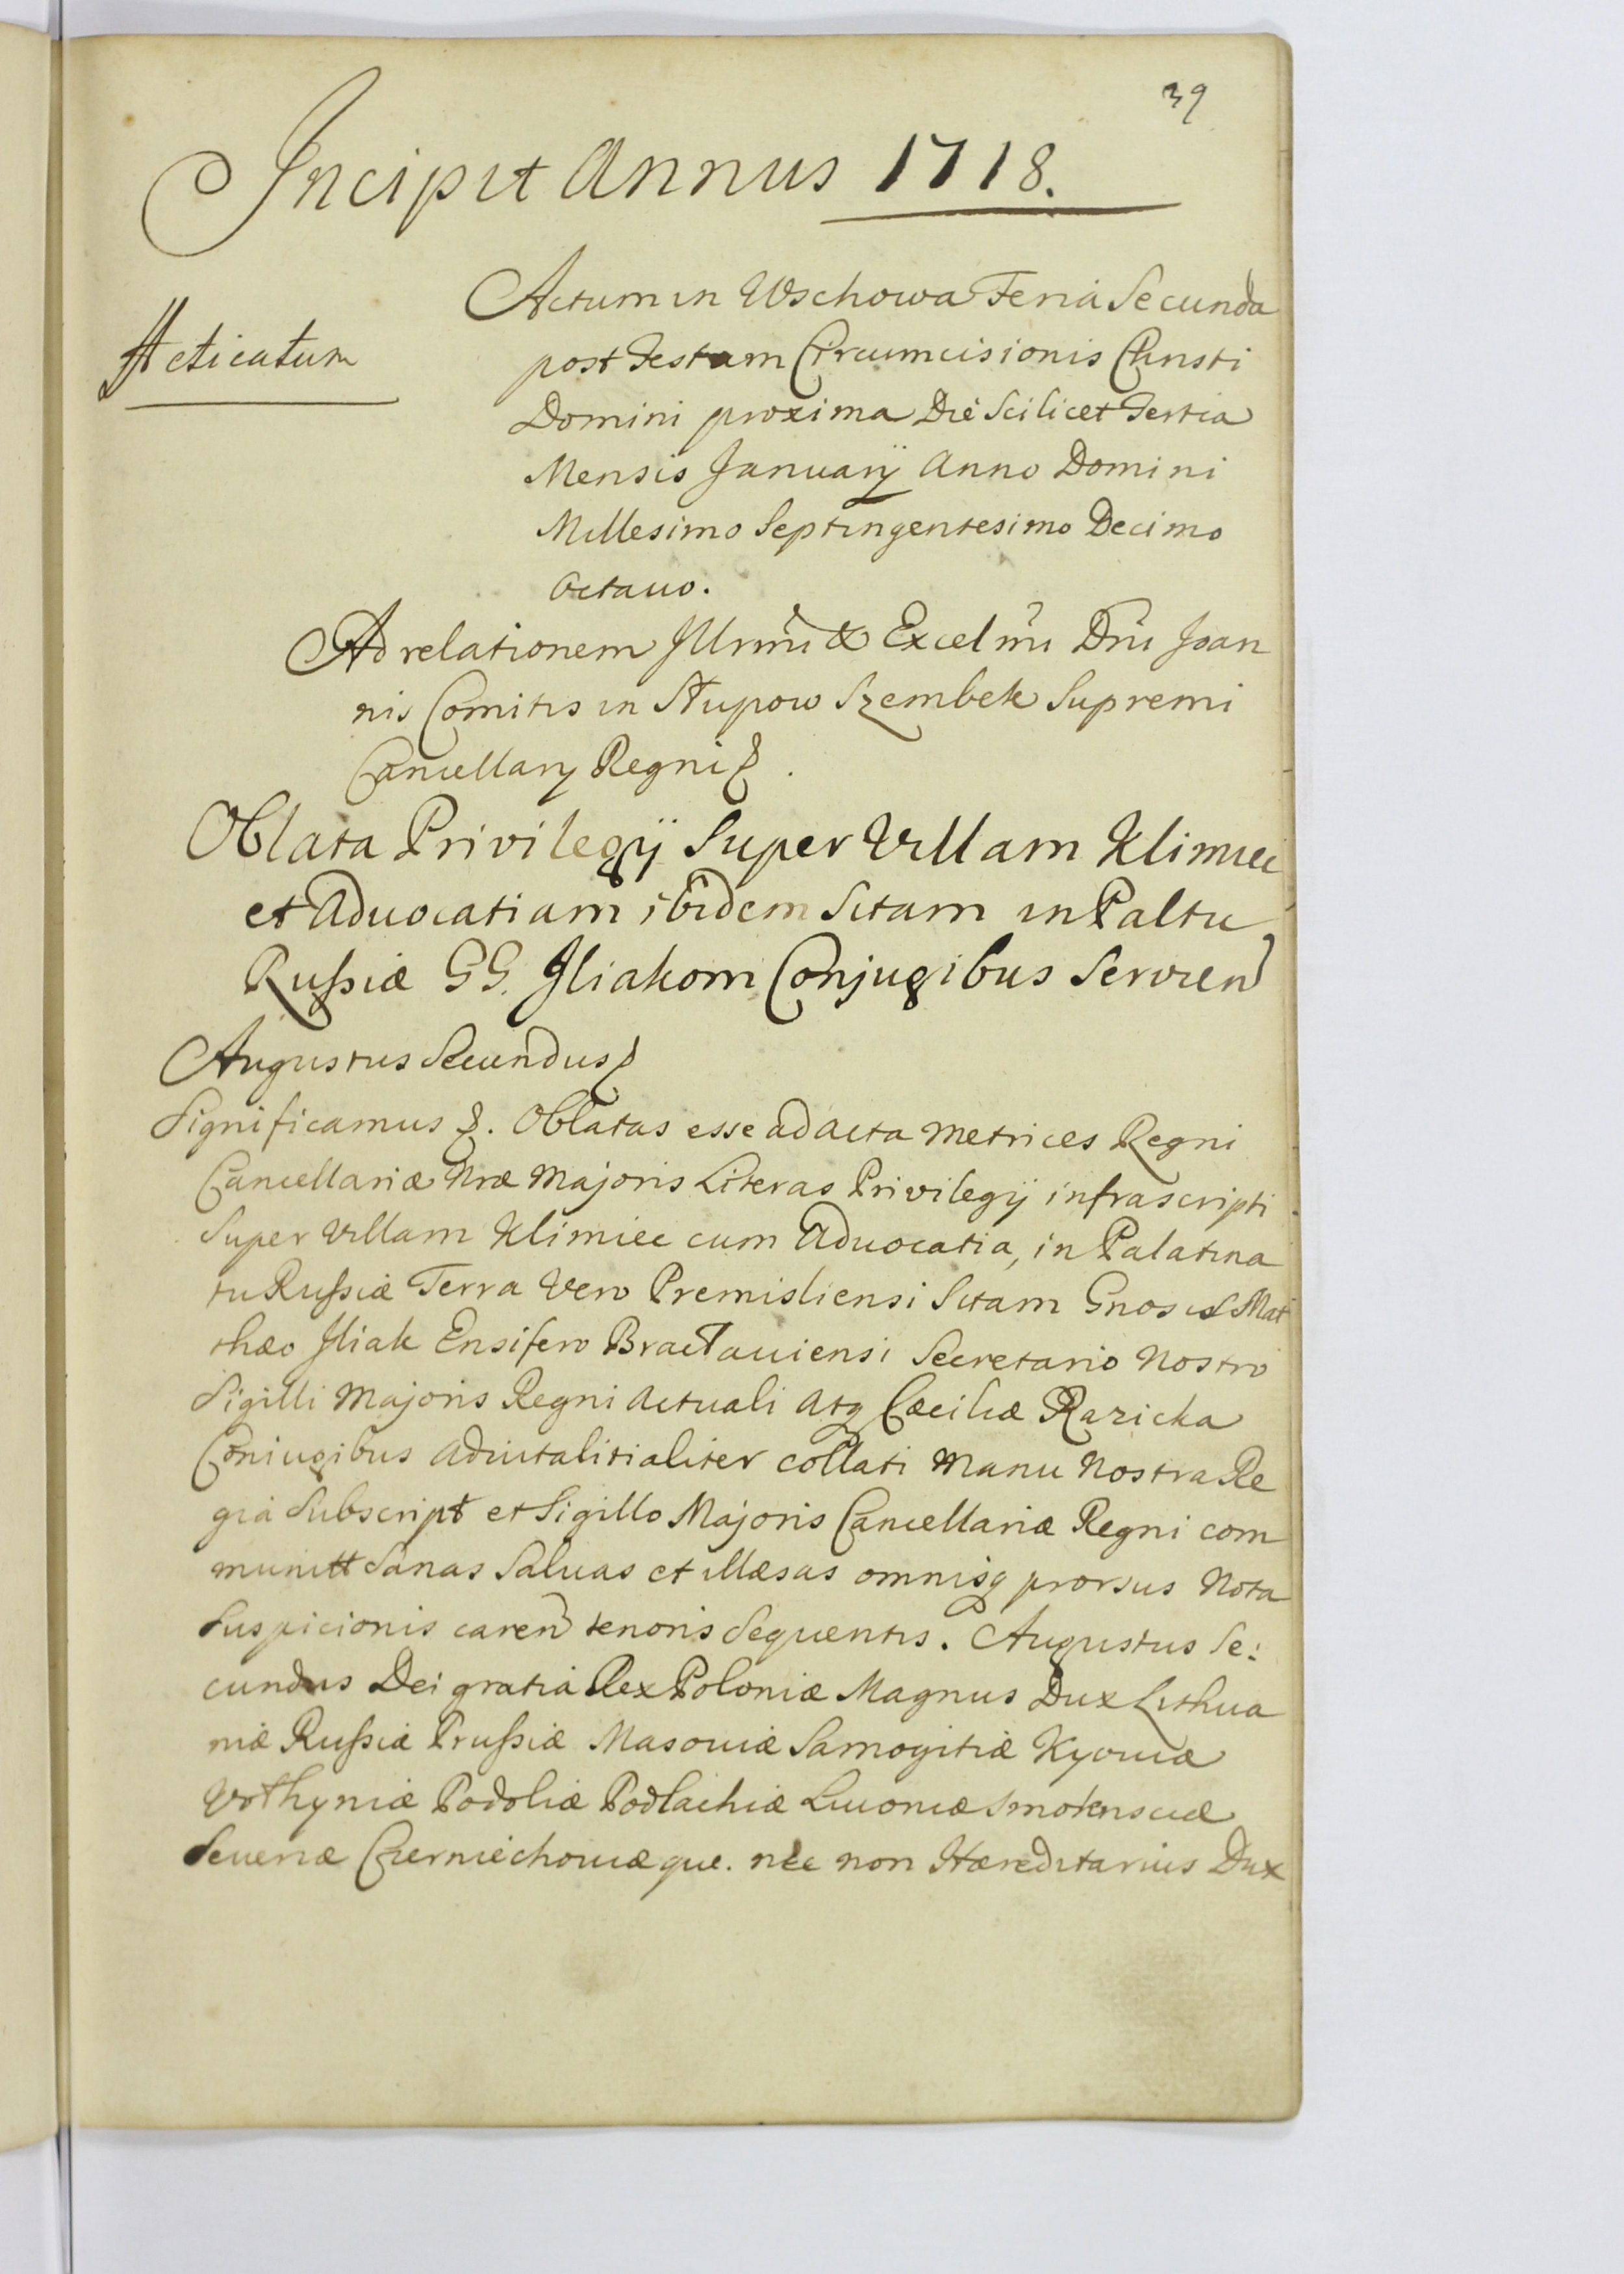 39
Incipit Annus 1718.
Acticatum
Actum in Wschowa Feria Secunda
post Festum Circumcisionis Christi
Domini proxima Die Scilicet Tertia
Mensis Januarÿ Anno Domini
Millesimo Septingentesimo Decimo
Octauo.
Ad relationem Illrmi & Excelmi Dni Joan
nis Comitis in Słupow Szembek Supremi
Cancellarÿ Regni &.
Oblata Privilegÿ Super Villam Klimiec
et Aduocatiam ibidem Sitam in Paltu
Russiæ GG. Iliakom Conjugibus Servien
Augustus Secundus &
Significamus &. Oblatas esse ad Acta Metrices Regni
Cancellariæ Nræ Majoris Literas Privilegÿ infrascripti
Super Villam Klimiec cum Aduocatia, in Palatina
tu Russiæ Terra Vero Premisliensi Sitam Gnosis Mat
thæo Iliak Ensifero Bracłauiensi Secretario Nostro
Sigilli Majoris Regni Actuali Atq Cæciliæ Razicka
Coniugibus aduitalitialiter collati Manu Nostra Re
gia Subscript et Sigillo Majoris Cancellariæ Regni com
munitt Sanas Saluas et illæsas omnisq prorsus Nota
Suspicionis caren tenoris Sequentis. Augustus Se:
cundus Dei gratia Rex Poloniæ Magnus Dux Lithua
niæ Russiæ Prussiæ Masouiæ Samogitiæ Kyouiæ
Vołhyniæ Podoliæ Podlachiæ Liuoniæ Smolensciæ
Seueriæ Czerniechouiæque. nec non Hæreditarius Dux